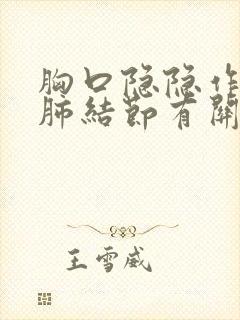 胸口隐隐作
肺结节有关
王雪威